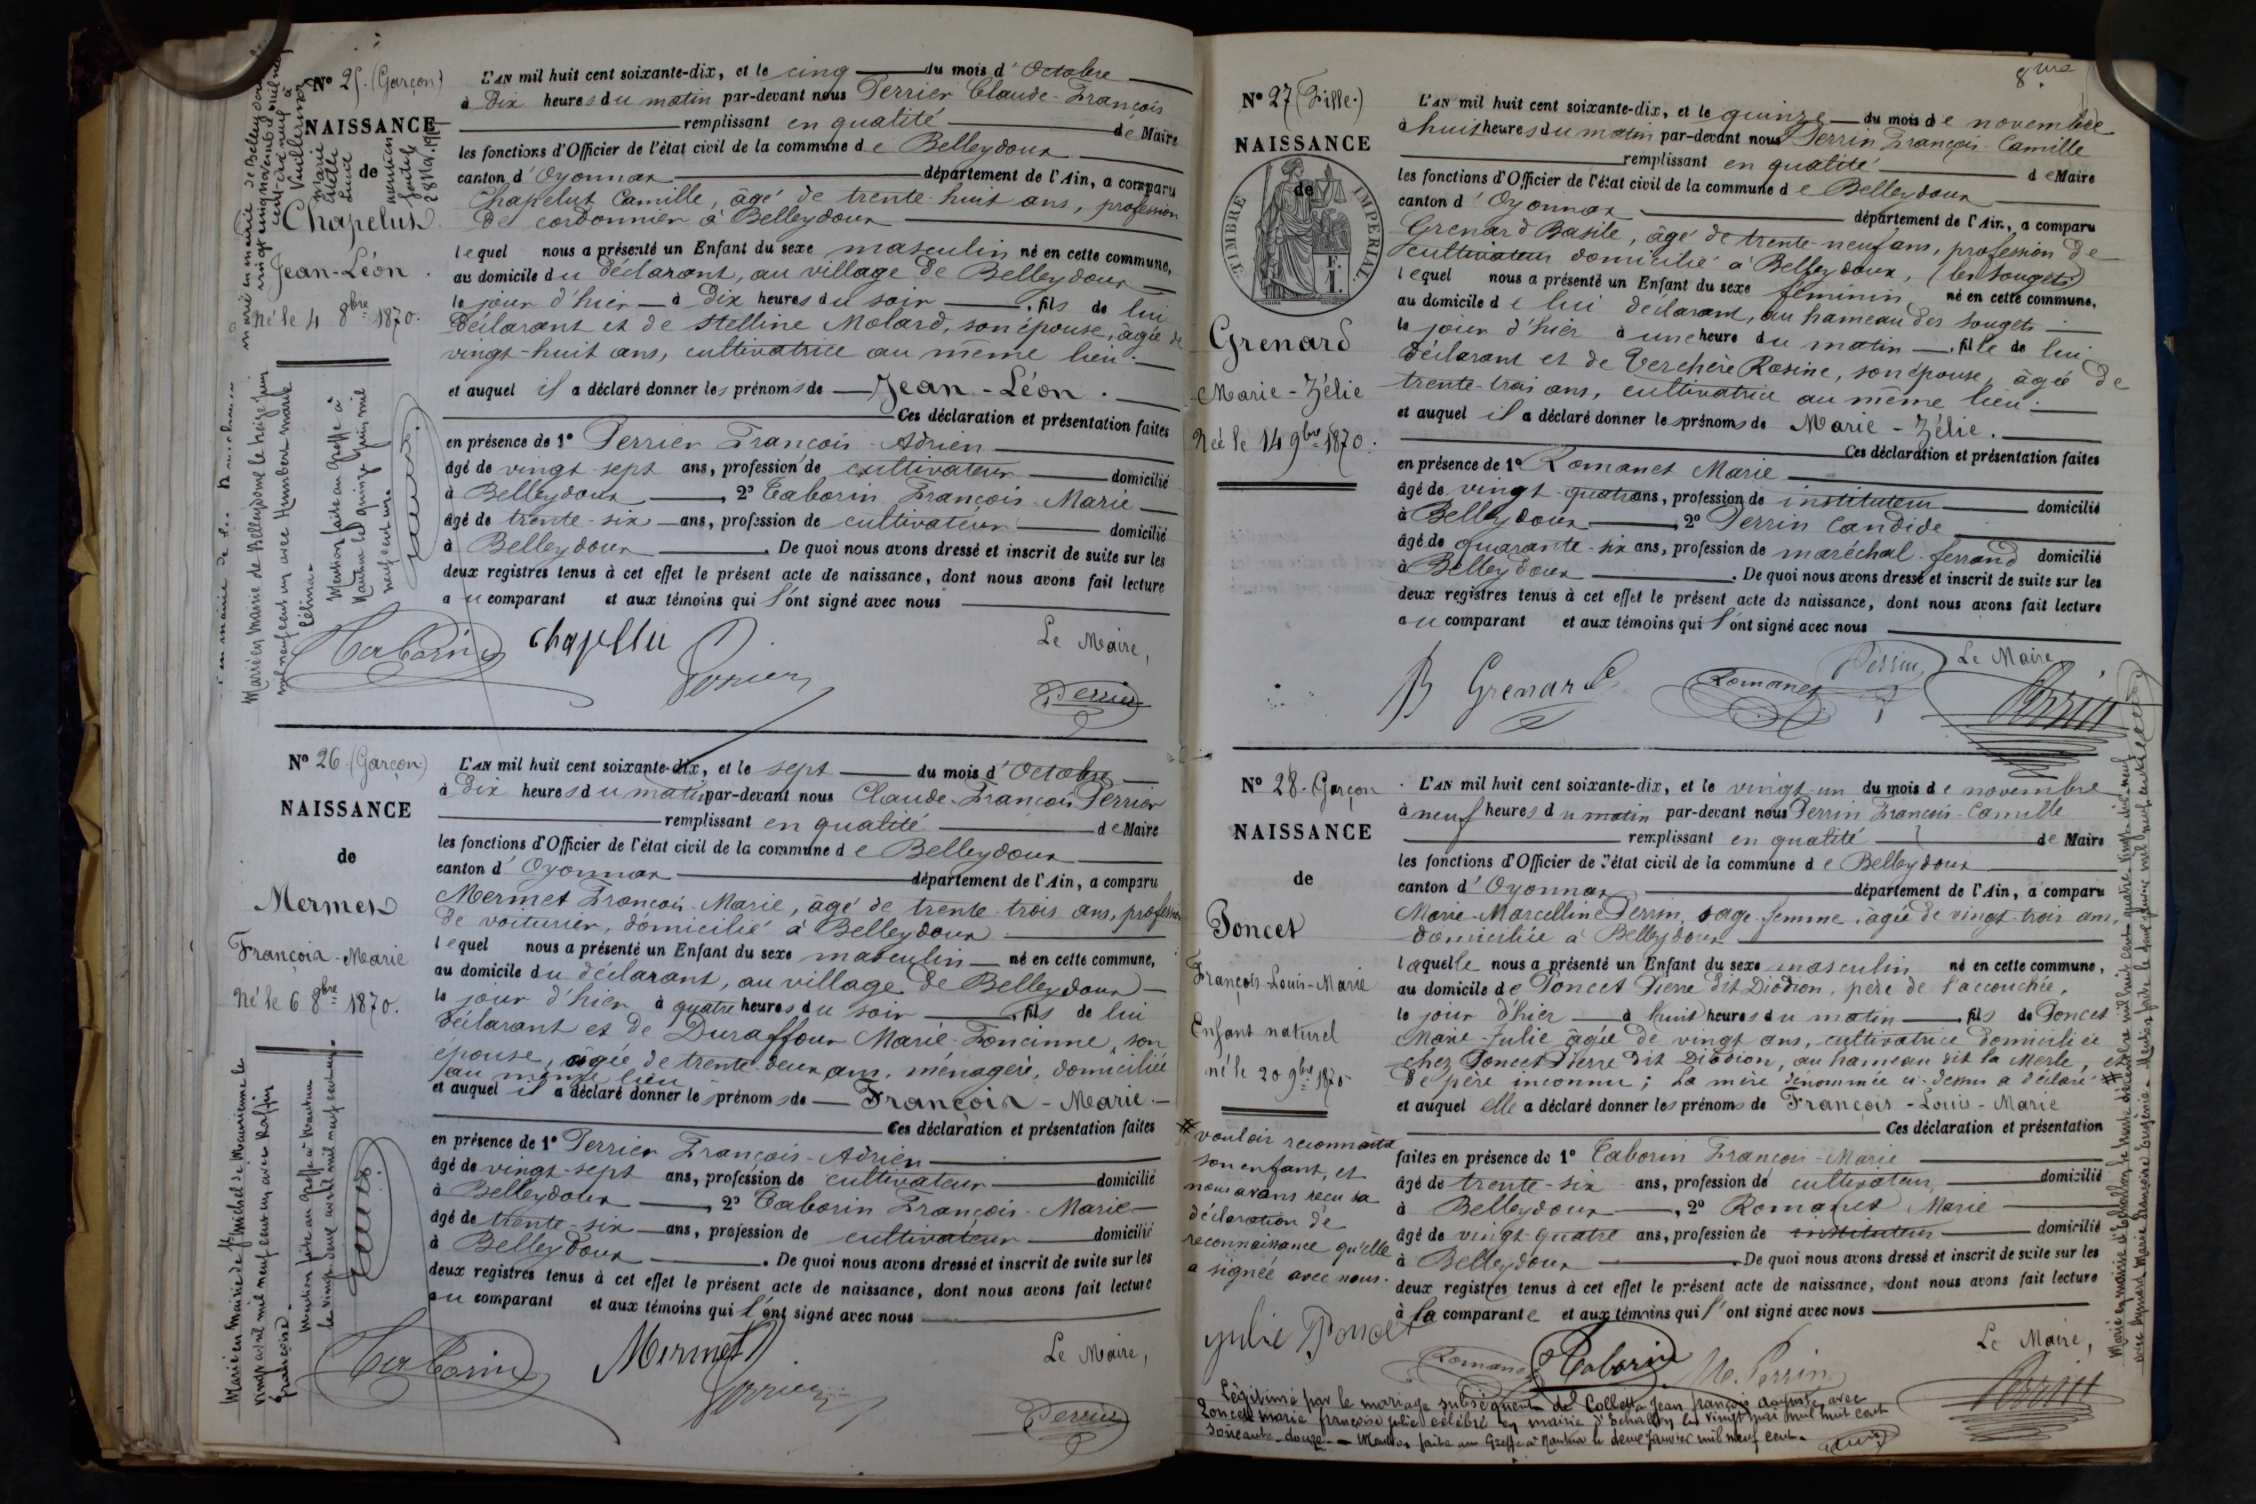 Nº 25. (Garçon)
NAISSANCE
de
Chapelut
Jean-Léon.
Né le 4 8bre 1870.
L'AN mil huit cent soixante-dix, et le cinq du mois d'Octobre
à Dix heures du matin par-devant nous Perrier Claude-François
remplissant en qualité de Maire
les fonctions d'Officier de l'état civil de la commune de Belleydoux
canton d'Oyonnax département de l'Ain, a comparu
Chapelut Camille, âgé de trente-huit ans, profession
de cordonnier à Belleydoux
lequel nous a présenté un Enfant du sexe masculin né en cette commune,
au domicile du déclarant, au village de Belleydoux
le jour d'hier à Dix heures du soir, fils de lui
déclarant et de Stelline Molard, son épouse, âgée de
vingt-huit ans, cultivatrice au même lieu.
et auquel il a déclaré donner les prénoms de Jean-Léon.
Ces déclaration et présentation faites
en présence de 1º Perrier François-Adrien
âgé de vingt-sept ans, profession de cultivateur domicilié
à Belleydoux, 2º Taborin François-Marie
âgé de trente-six ans, profession de cultivateur domicilié
à Belleydoux. De quoi nous avons dressé et inscrit de suite sur les
deux registres tenus à cet effet le présent acte de naissance, dont nous avons fait lecture
au comparant et aux témoins qui l'ont signé avec nous
Le Maire,
Taborin Chapellu Perrier Perrier
Marié en mairie de Belleydoux le treize juin
mil neuf cent un avec Humbert marie
Célina.
Mention faite au Greffe à
Nantua le quinze juin mil
neuf cent un.
Nº 26. (Garçon)
NAISSANCE
de
Mermet
François-Marie
Né le 6 8bre 1870.
L'AN mil huit cent soixante-dix, et le sept du mois d'Octobre
à Dix heures du matin par-devant nous Claude-François Perrier
remplissant en qualité de Maire
les fonctions d'Officier de l'état civil de la commune de Belleydoux
canton d'Oyonnax département de l'Ain, a comparu
Mermet François-Marie, âgé de trente-trois ans, profession
de voiturier, domicilié à Belleydoux
lequel nous a présenté un Enfant du sexe masculin né en cette commune,
au domicile du déclarant, au village de Belleydoux
le jour d'hier à quatre heures du soir, fils de lui
déclarant et de Duraffour Marie-Foncinne, son
épouse, âgée de trente-deux ans, ménagère, domiciliée
au même lieu
et auquel il a déclaré donner les prénoms de François-Marie.
Ces déclaration et présentation faites
en présence de 1º Perrier François-Adrien
âgé de vingt-sept ans, profession de cultivateur domicilié
à Belleydoux, 2º Taborin François-Marie
âgé de trente-six ans, profession de cultivateur domicilié
à Belleydoux. De quoi nous avons dressé et inscrit de suite sur les
deux registres tenus à cet effet le présent acte de naissance, dont nous avons fait lecture
au comparant et aux témoins qui l'ont signé avec nous
Le Maire,
Taborin Mermet Perrier Perrier
Marié en mairie de St Michel de Maurienne le
vingt avril mil neuf cent un avec Raffin
françoise.
Mention faite au Greffe à Nantua
le vingt deux avril mil neuf cent un.
8me
Nº 27 (Fille.)
NAISSANCE
de
TIMBRE IMPÉRIAL
Grenard
Marie-Zélie
Née le 14 9bre 1870.
L'AN mil huit cent soixante-dix, et le quinze du mois de novembre
à huit heures du matin par-devant nous Perrin François-Camille
remplissant en qualité de Maire
les fonctions d'Officier de l'état civil de la commune de Belleydoux
canton d'Oyonnax département de l'Ain, a comparu
Grenard Basile, âgé de trente-neuf ans, profession de
cultivateur domicilié à Belleydoux, (les Sougets)
lequel nous a présenté un Enfant du sexe féminin né en cette commune,
au domicile de lui déclarant, au hameau des Sougets
le jour d'hier à une heure du matin, fille de lui
déclarant et de Verchère Rosine, son épouse, âgée de
trente-trois ans, cultivatrice au même lieu.
et auquel il a déclaré donner les prénoms de Marie-Zélie.
Ces déclaration et présentation faites
en présence de 1º Romanet Marie
âgé de vingt-quatre ans, profession de instituteur domicilié
à Belleydoux, 2º Perrin Candide
âgé de quarante-six ans, profession de maréchal-ferrand domicilié
à Belleydoux. De quoi nous avons dressé et inscrit de suite sur les
deux registres tenus à cet effet le présent acte de naissance, dont nous avons fait lecture
au comparant et aux témoins qui l'ont signé avec nous
Le Maire
B Grenard Romanet Perrin Perrin
Nº 28. Garçon
NAISSANCE
de
Poncet
François-Louis-Marie
Enfant naturel
né le 20 9bre 1870
L'AN mil huit cent soixante-dix, et le vingt-un du mois de novembre
à neuf heures du matin par-devant nous Perrin François-Camille
remplissant en qualité de Maire
les fonctions d'Officier de l'état civil de la commune de Belleydoux
canton d'Oyonnax département de l'Ain, a comparu
Marie-Marcelline Perrin, sage-femme, âgée de vingt-trois ans,
domiciliée à Belleydoux
laquelle nous a présenté un Enfant du sexe masculin né en cette commune,
au domicile de Poncet Pierre dit Diodion, père de l'accouchée,
le jour d'hier à huit heures du matin, fils de Poncet
Marie-Julie âgée de vingt ans, cultivatrice domiciliée
chez Poncet Pierre dit Diodion, au hameau dit la Merle, et
de père inconnu; La mère dénommée ci-dessus a déclaré #
et auquel elle a déclaré donner les prénoms de François-Louis-Marie
Ces déclaration et présentation
faites en présence de 1º Taborin François-Marie
âgé de trente-six ans, profession de cultivateur, domicilié
à Belleydoux, 2º Romanet Marie
âgé de vingt-quatre ans, profession de instituteur domicilié
à Belleydoux. De quoi nous avons dressé et inscrit de suite sur les
deux registres tenus à cet effet le présent acte de naissance, dont nous avons fait lecture
à la comparante et aux témoins qui l'ont signé avec nous
# vouloir reconnaître
son enfant, et
nous avons reçu sa
déclaration de
reconnaissance qu'elle
a signée avec nous.
Le Maire,
Julie Poncet Romanet Taborin M. Perrin Perrin
Légitimé par le mariage subséquent de Collet Jean françois Auguste, avec
Poncet marie françoise julie célébré en mairie d'Echallon le vingt mai mil huit cent
soixante-douze. Mention faite au Greffe à Nantua le deux janvier mil neuf cent.